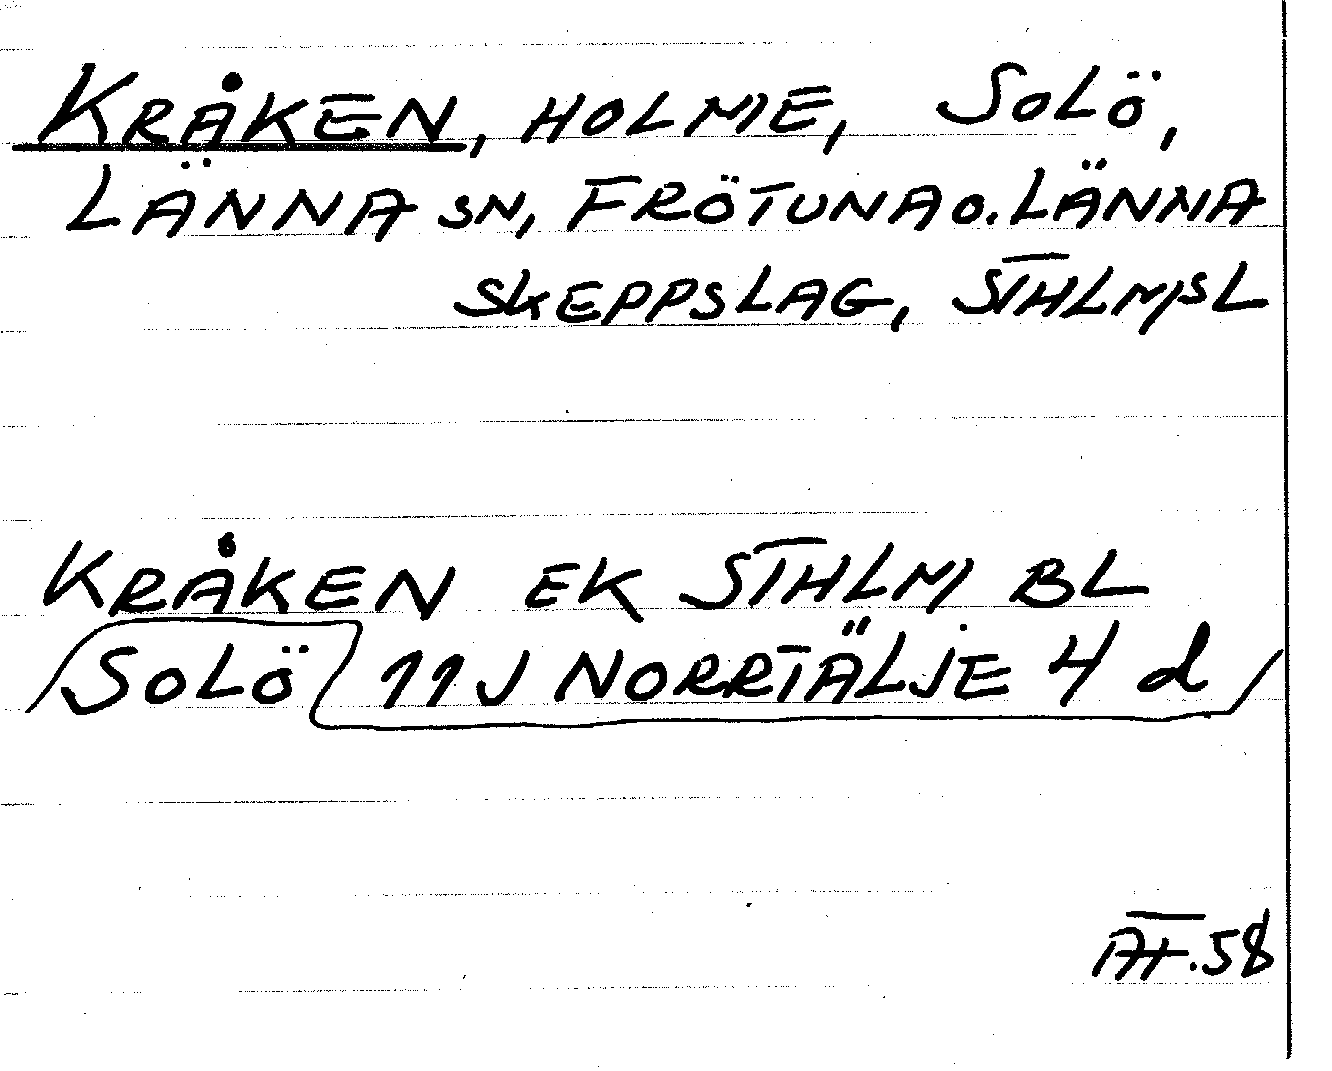 KRÅKEN, HOLME, SOLÖ,
LÄNNA SN, FRÖTUNA O. LÄNNA
SKEPPSLAG, STHLMSL
KRÅKEN EK STHLM BL
SOLÖ 11J NORRTÄLJE 4 d
AF.58